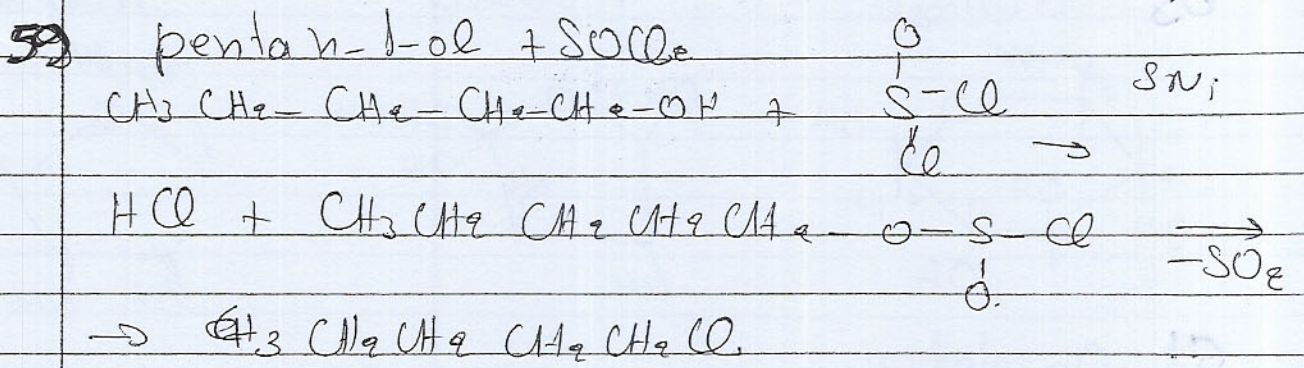 59) pentan-1-ol + SOCl2
O
CH3 CH2 - CH2 - CH2 - CH2 - OH + S - Cl SNi
Cl →
HCl + CH3 CH2 CH2 CH2 CH2 - O - S - Cl →
-SO2
O
→ CH3 CH2 CH2 CH2 CH2 Cl